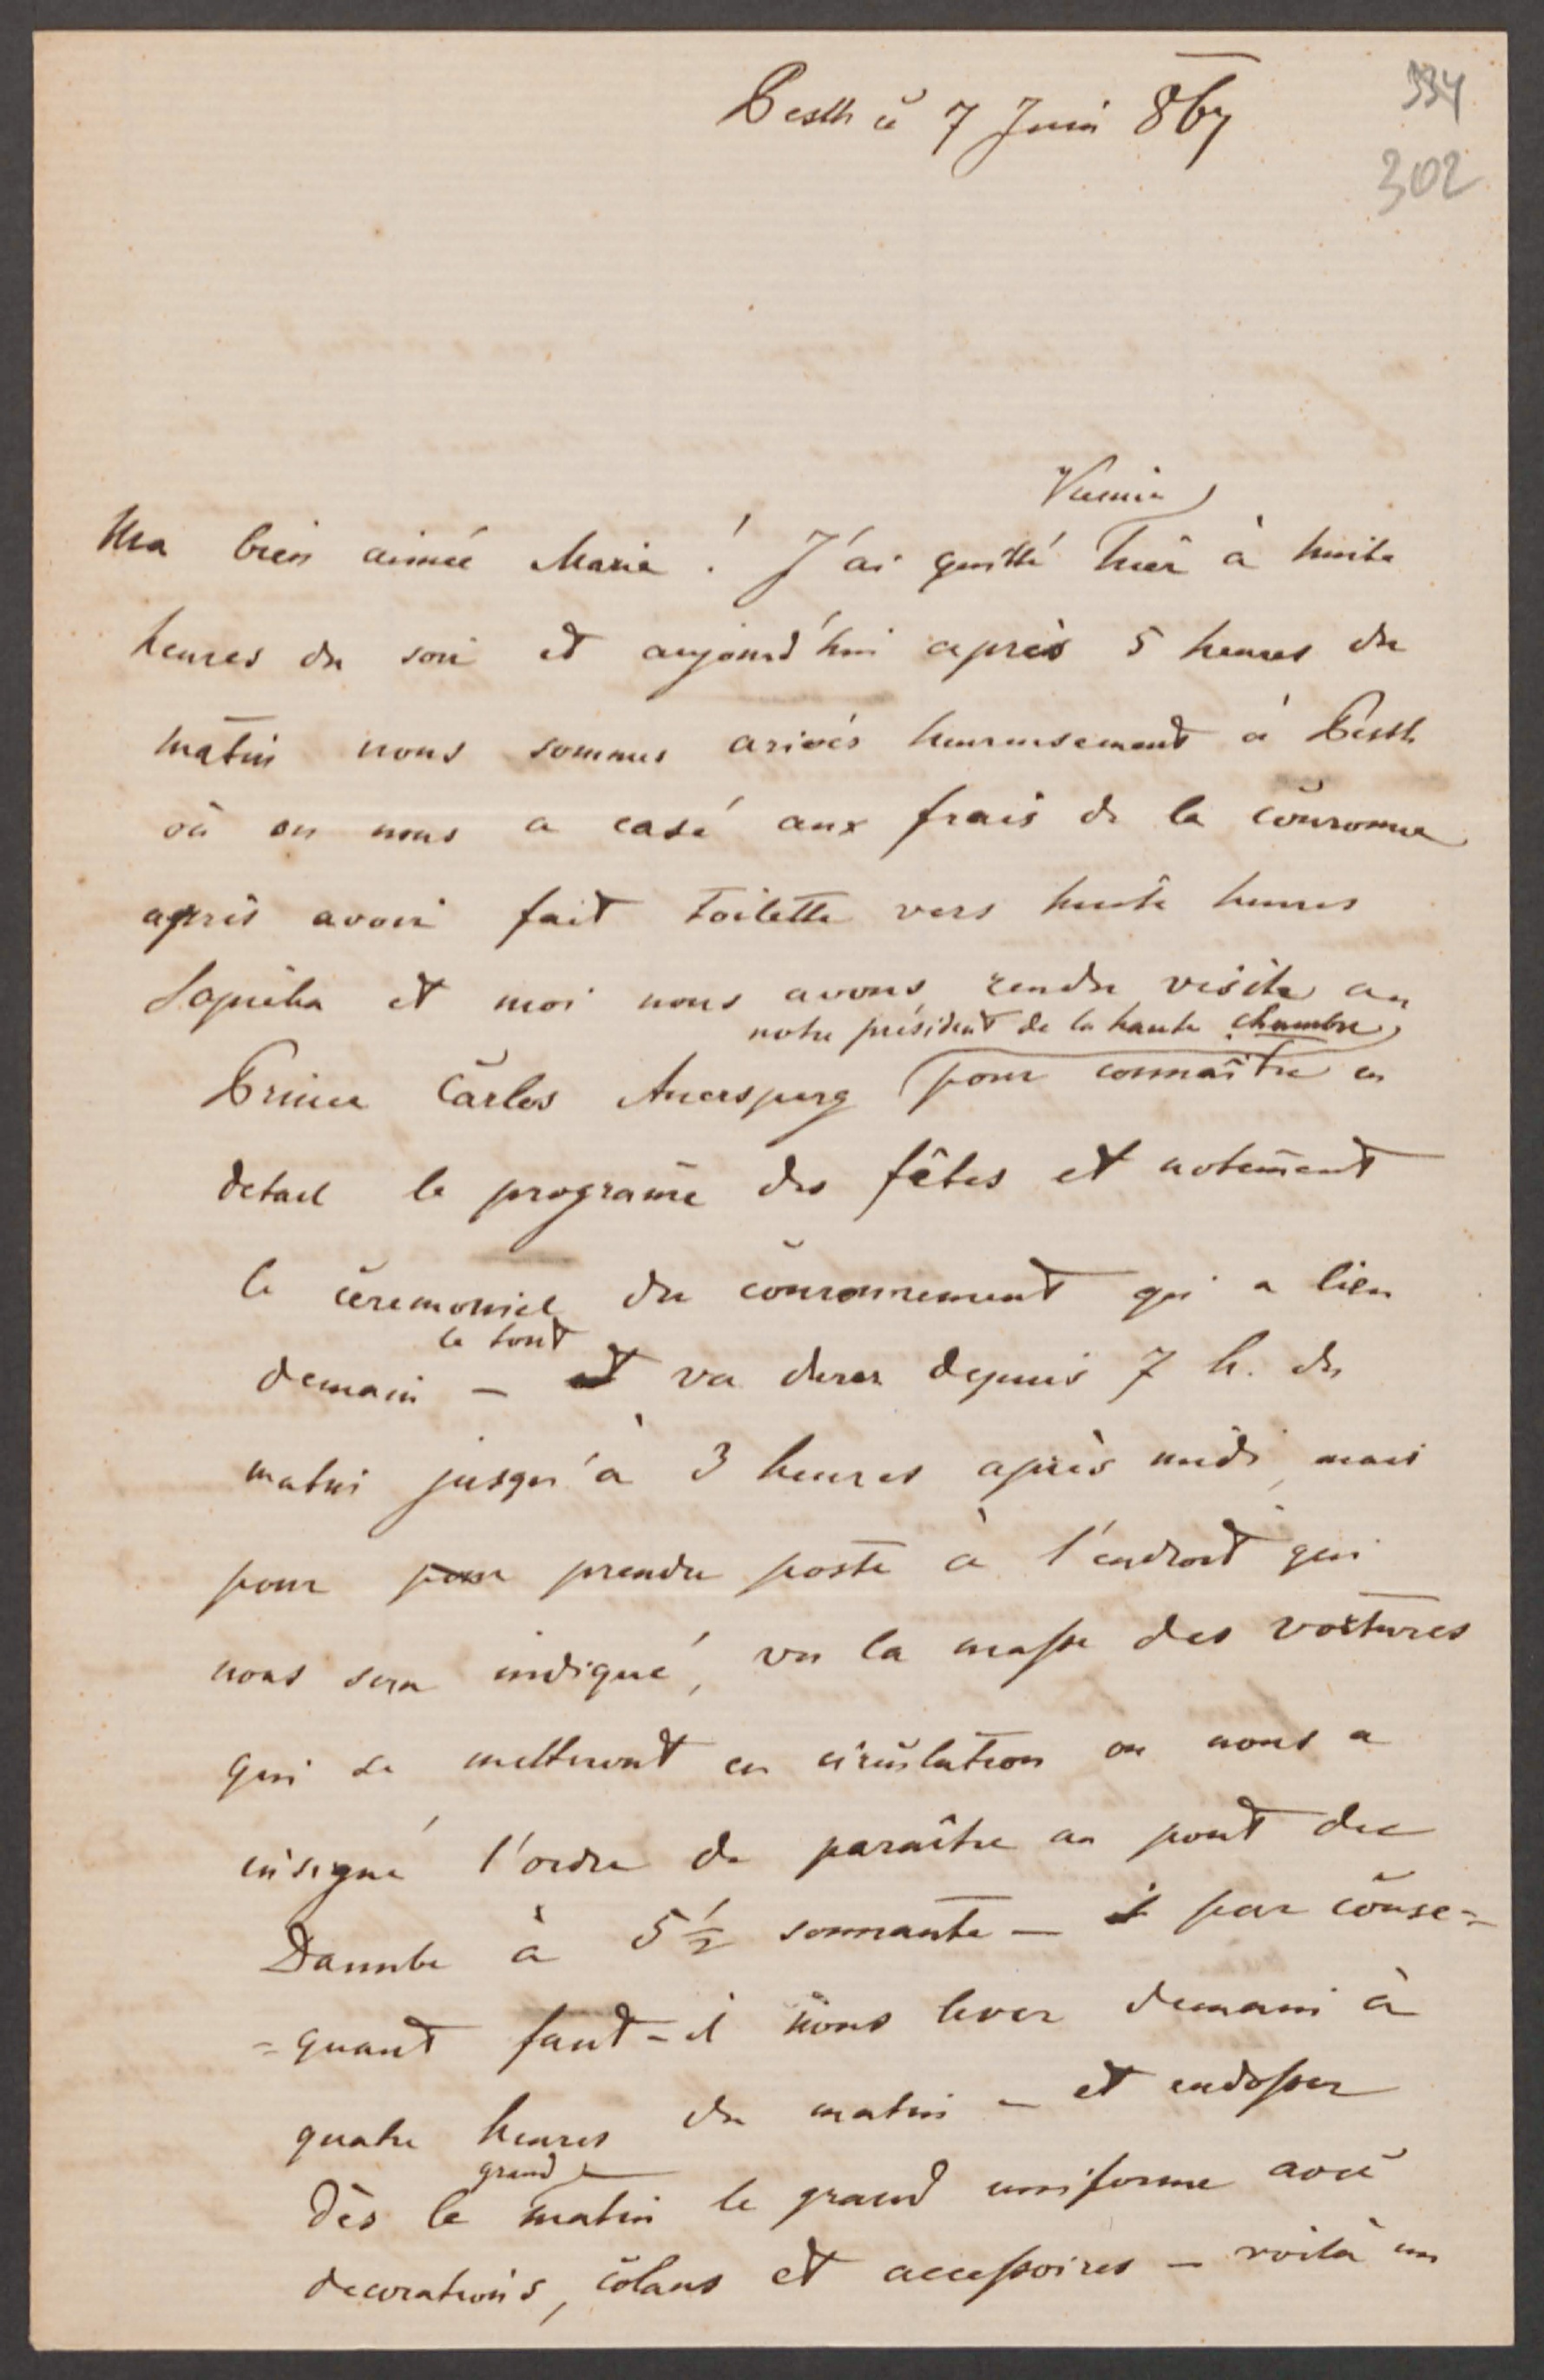 334
Pesth ce 7 Juin 867
302
Vienne
Ma bien aimée Marie! J'ai quitté hier à huite
heures du soir et aujourd'hui après 5 heures du
matin nous sommes arivés heureusement à Pesth
où on nous a casé aux frais de la couronne
après avoir fait toilette vers huite heures
Sapieha et moi nous avons rendu visite au
notre président de la haute chambre
Prince Carlos Auersperg pour connaître en
detail le programe des fêtes et notement
le ceremoniel du couronnement qui a lieu
le tout
demain – et va durer depuis 7 h. du
matin jusqu'à 3 heures après midi, mais
pour pour prendre poste à l'endroit qui
nous sera indiqué, vu la masse des voitures
qui se metteront en circulation on nous a
insigné l'ordre de paraître au pont du
Danube à 5 1/2 sonnante – par conse=
=quant faut-il nous lever demain à
quatre heures du matin – et endosser
grand
dès le matin le grand uniforme avec
decorations, colans et accessoires – voilà un